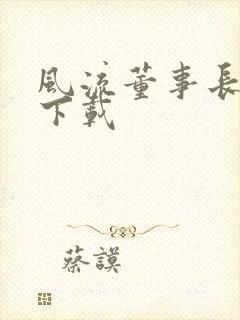 風流董事長
下載
蔡謨